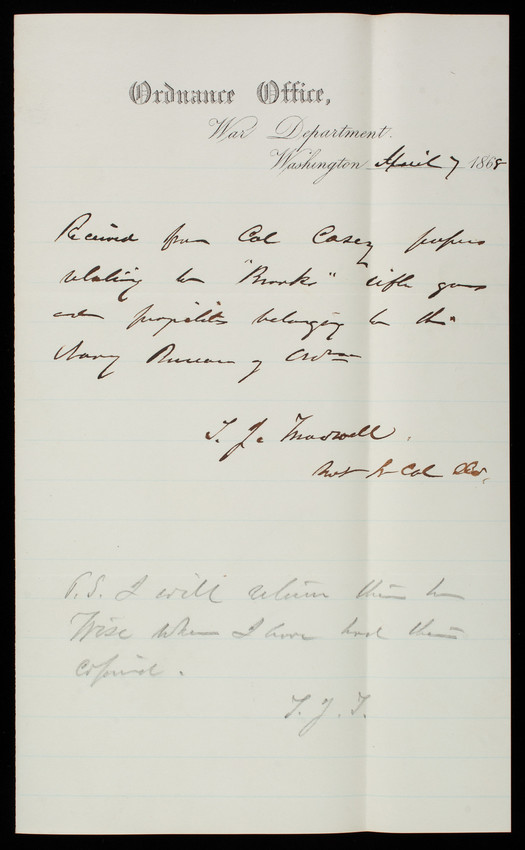 Ordnance Office,
War Department.
Washington April 7 1868
Received from Col Casey papers
relating to "Brooke" rifle guns
and projectiles belonging to the
Navy Bureau of Ord
T. J.
Bvt Lt Col Ord.
P.S. I will return them to
Wise when I have had them
copied.
T. J. T.